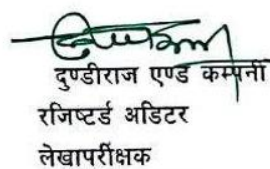 दुण्डीराज एण्ड कम्पनी
रजिष्टर्ड अडिटर
लेखापरीक्षक